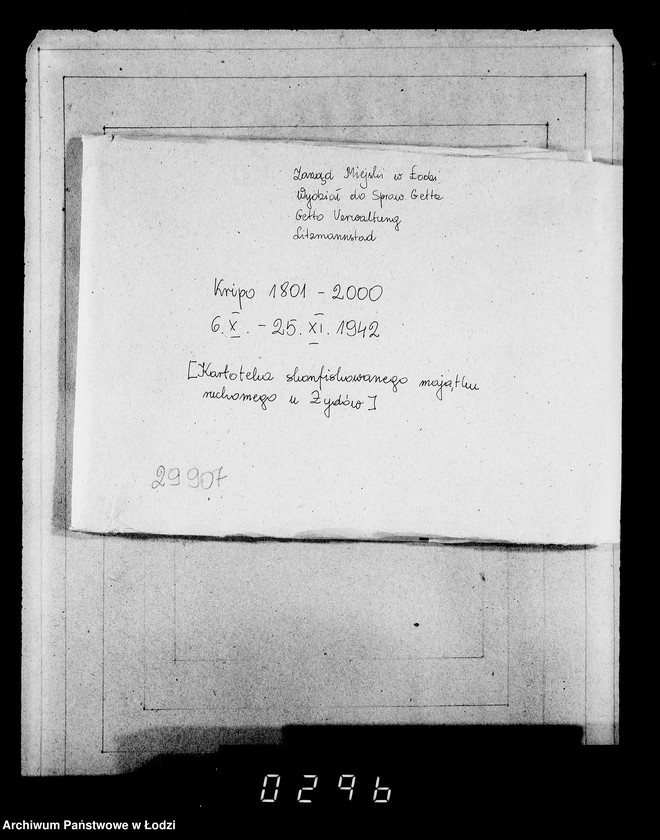 Zarząd Miejski w Łodzi
Wydział do Spraw. Getta
Getto Verwaltung
Litzmannstad
Kripo 1801 - 2000
6. X. - 25. XI. 1942
[Kartoteka skonfiskowanego majątku
ruchomego u Żydów]
29907
0296
Archiwum Państwowe w Łodzi